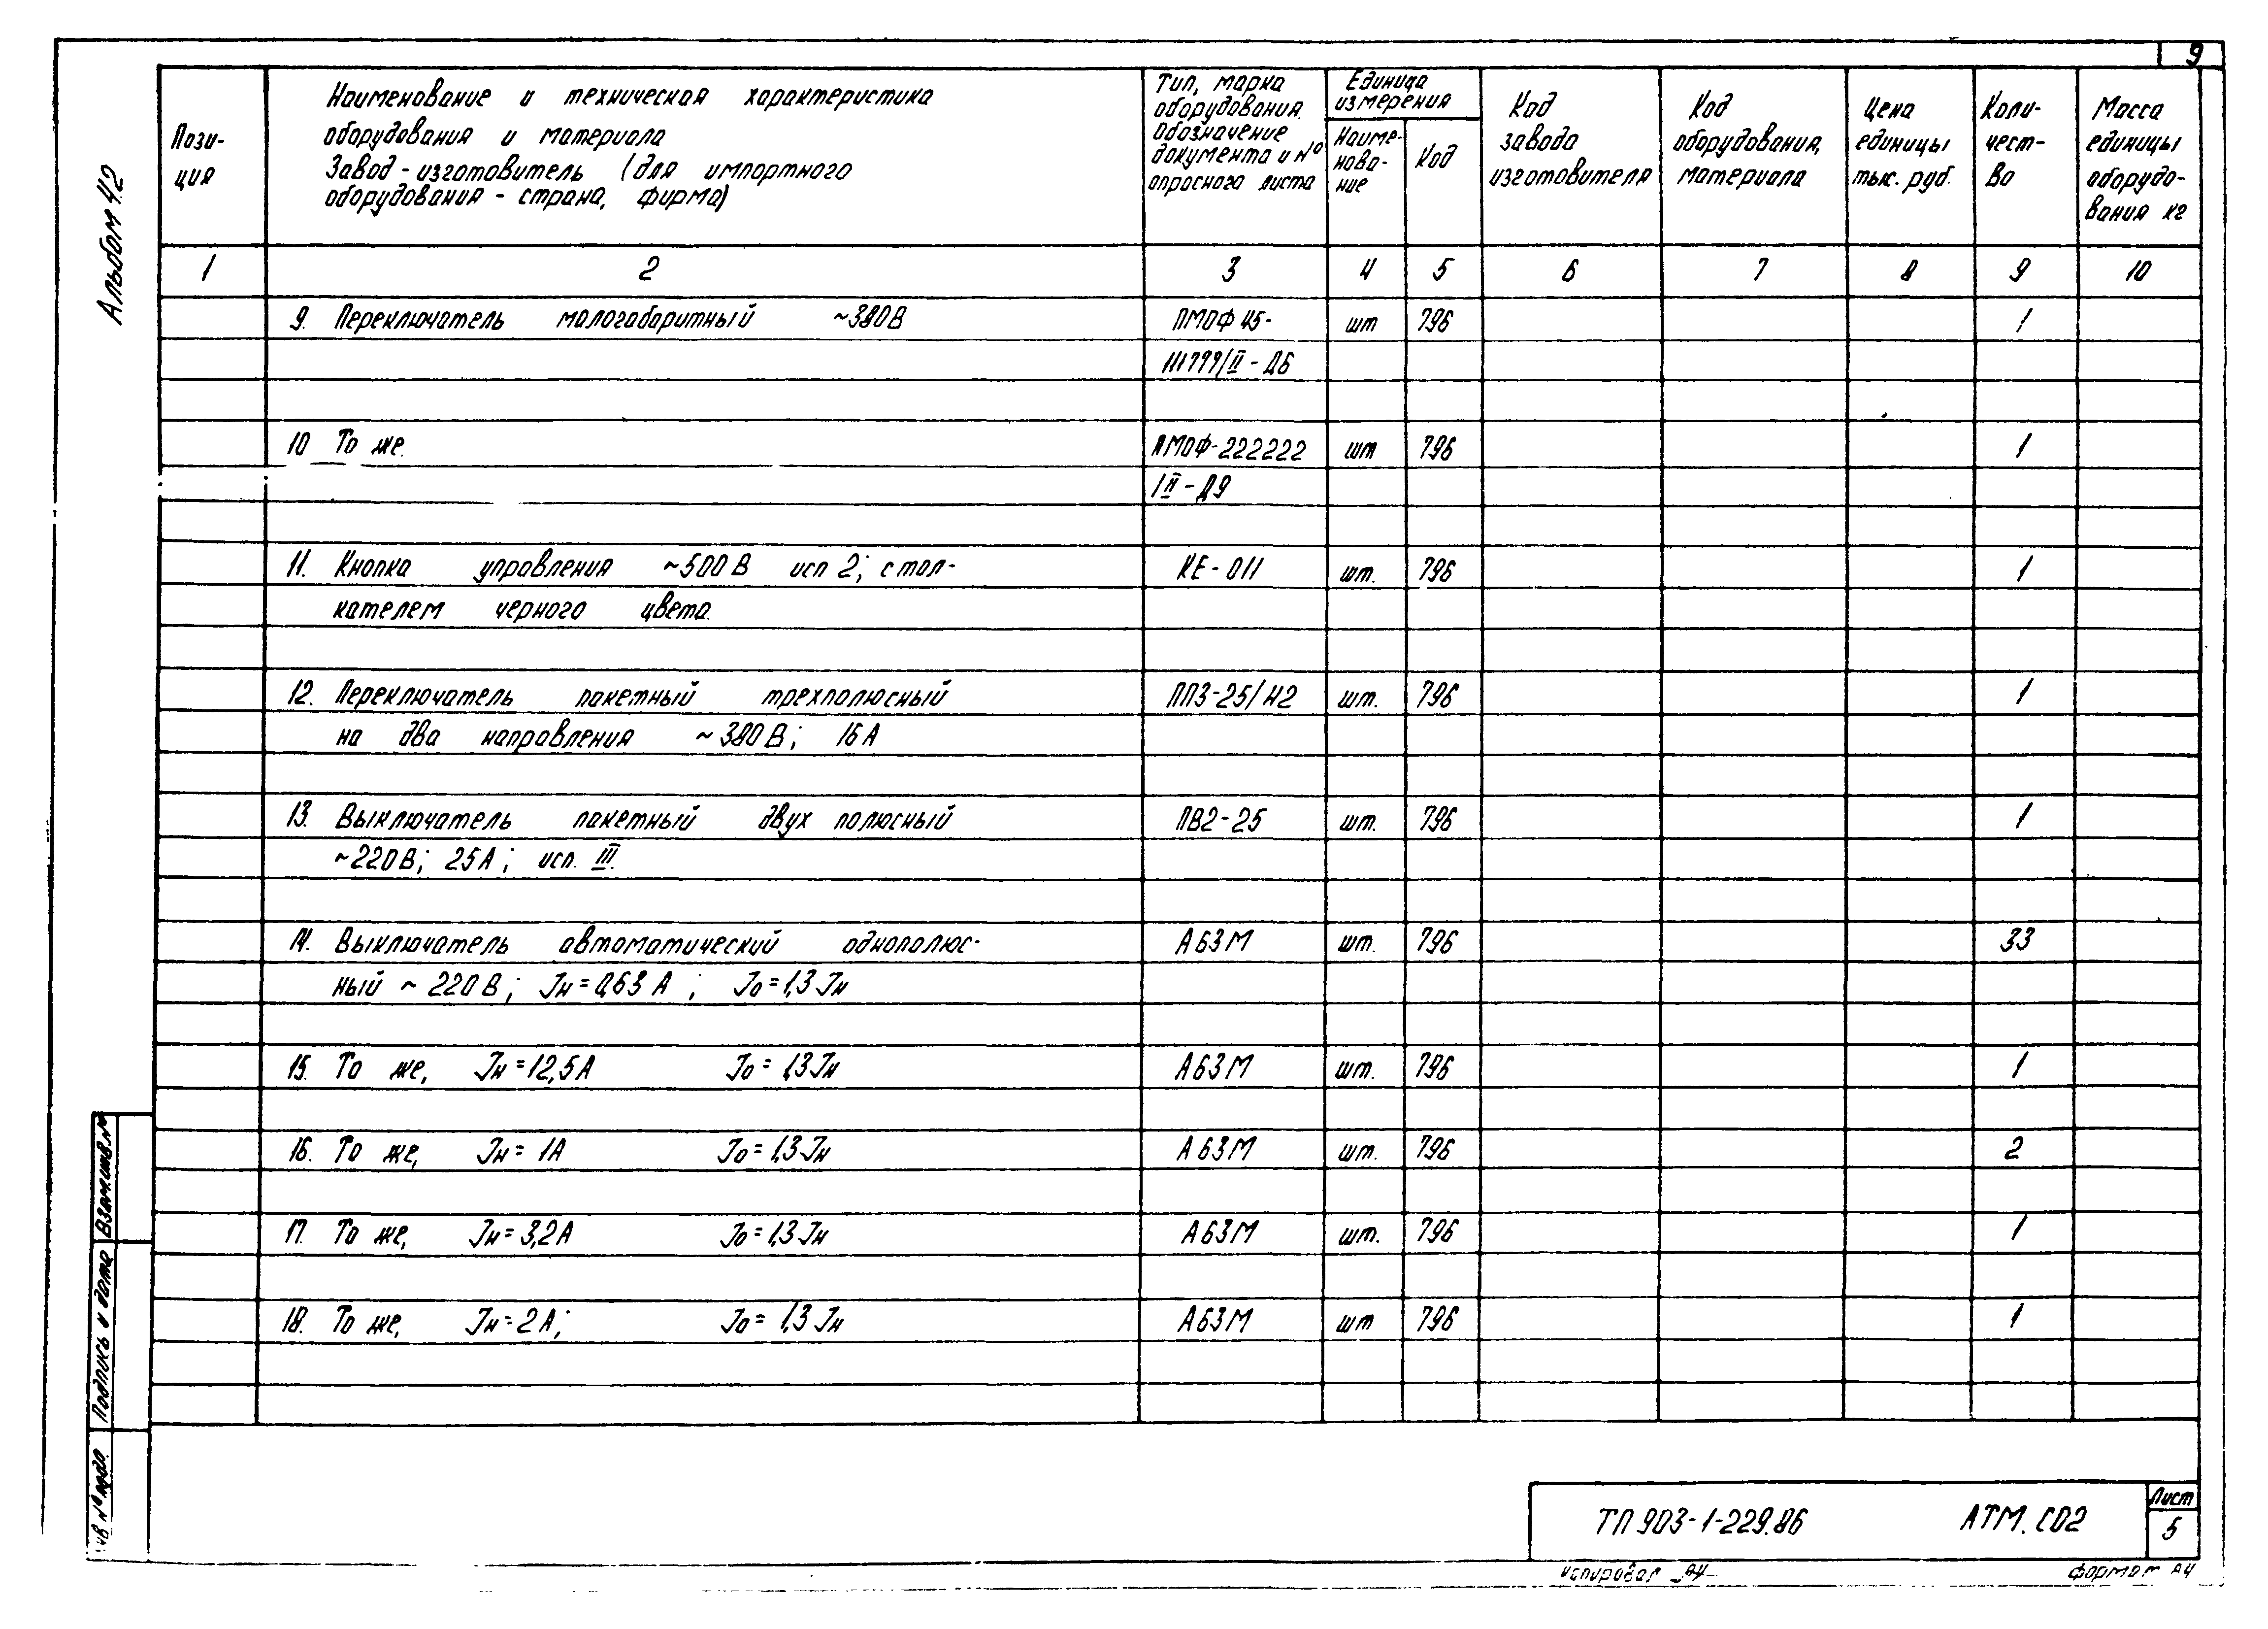 9
Альбом 4.2
Пози-
ция
Наименование и техническая характеристика
оборудования и материала
Завод-изготовитель (для импортного
оборудования - страна, фирма)
Тип, марка
оборудования.
Обозначение
документа и №
опросного листа
Единица
измерения
Наиме-
нова-
ние
Код
Код
завода
изготовителя
Код
оборудования,
материала
Цена
единицы
тыс. руб.
Коли-
чест-
во
Масса
единицы
оборудо-
вания кг
1 2 3 4 5 6 7 8 9 10
9. Переключатель малогабаритный ~380В ПМОФ 45- шт 796 1
111777/II-Д6
10 То же. ПМОФ-222222 шт 796 1
I II-Д9
11. Кнопка управления ~500В исп 2; с тол- КЕ-011 шт. 796 1
кателем черного цвета.
12. Переключатель пакетный трехполюсный ПП3-25/Н2 шт. 796 1
на два направления ~380В; 16А
13. Выключатель пакетный двух полюсный ПВ2-25 шт. 796 1
~220В; 25А; исп. III.
14. Выключатель автоматический однополюс- А63М шт. 796 33
ный ~220В; Jн=0,63А; Jо=1,3Jн
15. То же, Jн=12,5А Jо=1,3Jн А63М шт. 796 1
16. То же, Jн=1А Jо=1,3Jн А63М шт. 796 2
17. То же, Jн=3,2А Jо=1,3Jн А63М шт. 796 1
18. То же, Jн=2А; Jо=1,3Jн А63М шт 796 1
Взам.инв.№
Подпись и дата
Инв № подл.
ТП 903-1-229.86 АТМ.СО2
Лист
5
Формат А4